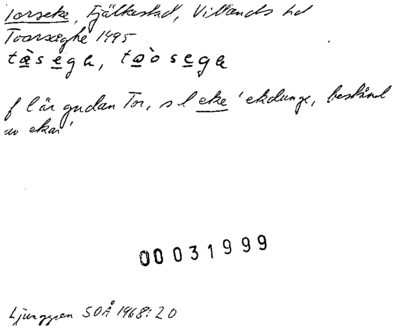 Torseke, Fjälkestad, Villands hd
Toorsæghe 1495
tàsega, taòosega
f l är gudan Tor, s l eke 'ekdunge, bestånd
av ekar'
00031999
Ljunggren SOÅ 1968:20